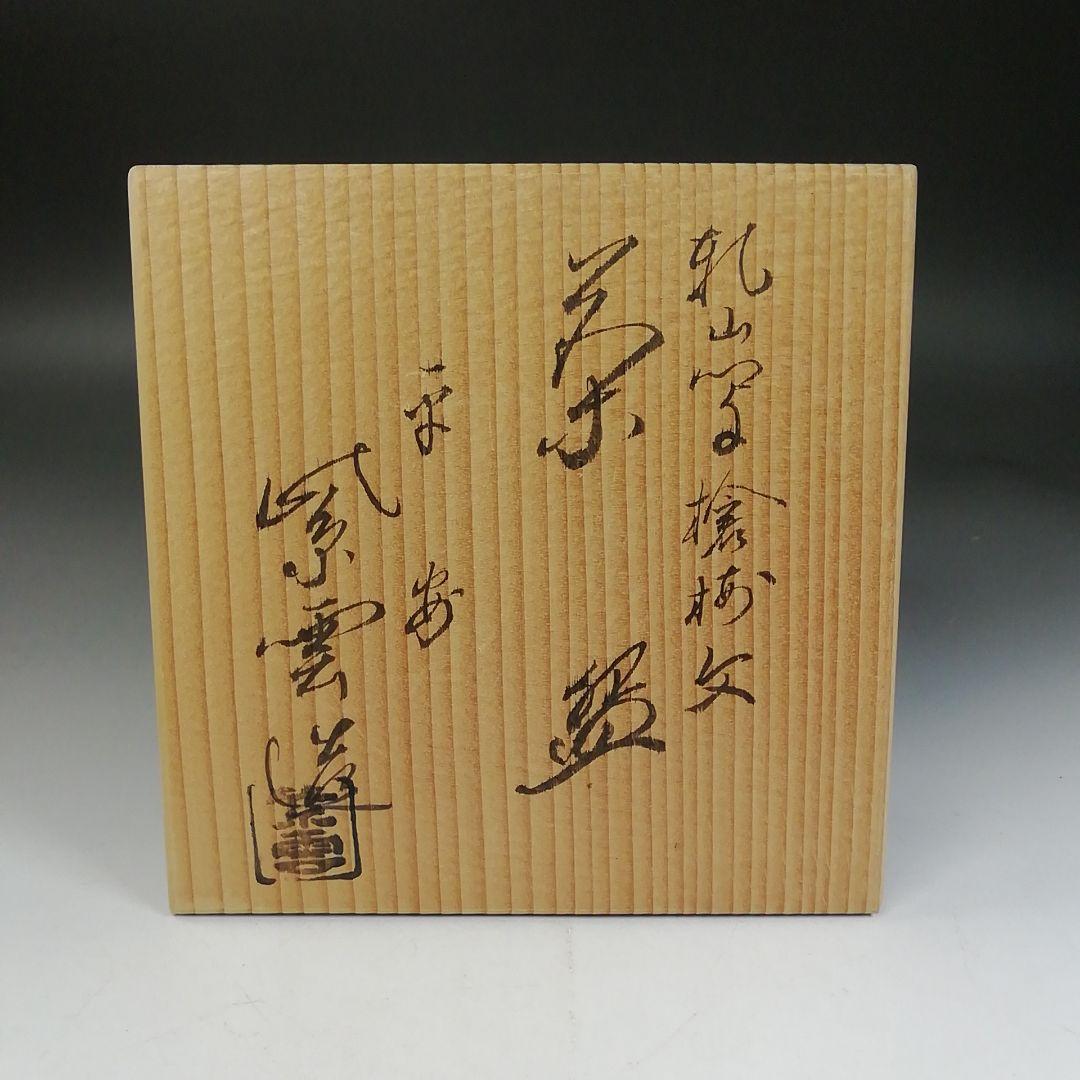 乾山写槍梅文
茶盌
平安
紫雲造
紫雲